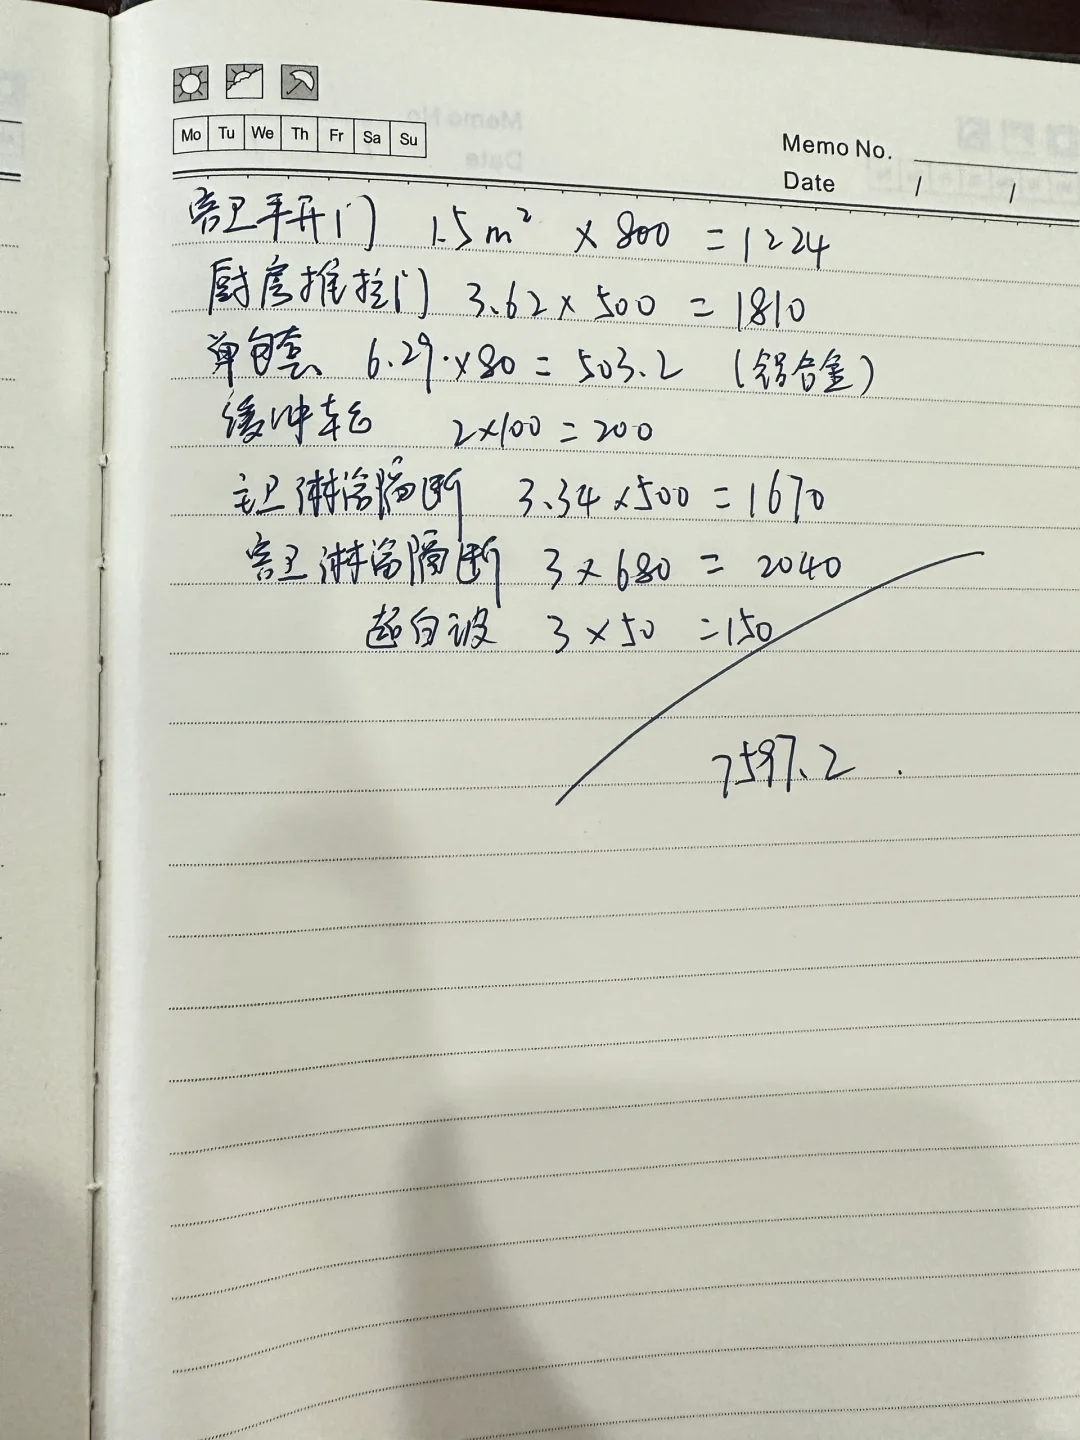 Mo Tu We Th Fr Sa Su
Memo No.
Date / /
客卫平开门 1.5m² × 800 = 1224
厨房推拉门 3.62 × 500 = 1810
单包套 6.29 × 80 = 503.2 (铝合金)
缓冲轮 2×100 = 200
主卫淋浴隔断 3.34 × 500 = 1670
客卫淋浴隔断 3 × 680 = 2040
超白玻 3 × 50 = 150
7597.2